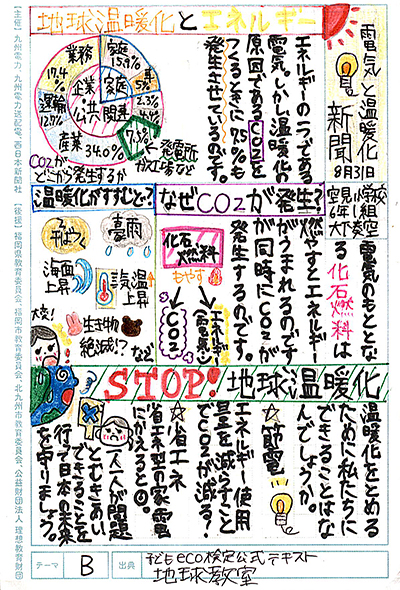 電気と温暖化
新聞
8月31日
空見小学校
6年 組
大下
地球温暖化とエネルギー
エネルギーの一つである
電気。しかし温暖化の
原因であるCO2を
つくるときに75%も
発生させているのです。
業務
17.4%
家庭
15.9%
5%
2.3%
4.4%
7.3%
運輸
12.7%
産業
34.0%
企業
公共
家庭
関連
←発電所
ガス工場など
CO2が
どこから発生するか
なぜCO2が発生?
電気のもととな
る化石燃料は
燃やすとエネルギー
がうまれるのです
が同時にCO2が
発生するのです。
化石
燃料
もやす
エネルギー
(電気)
CO2
温暖化がすすむと?
干ばつ
豪雨
海面
上昇
気温
上昇
大変!
生き物
絶滅!?
など
STOP!地球温暖化
温暖化をとめる
ために私たちに
できることはな
んでしょうか。
☆節電
エネルギー使用
量を減らすこと
でCO2が減る!
☆省エネ
省エネ型の家電
にかえると◎。
一人一人が問題
とむきあい
できることを
行って日本の未来
を守りましょう。
テーマ
B
出典
子どもeco検定公式テキスト
地球教室
【主催】九州電力、九州電力送配電、西日本新聞社
【後援】福岡県教育委員会、福岡市教育委員会、北九州市教育委員会、公益財団法人 理想教育財団